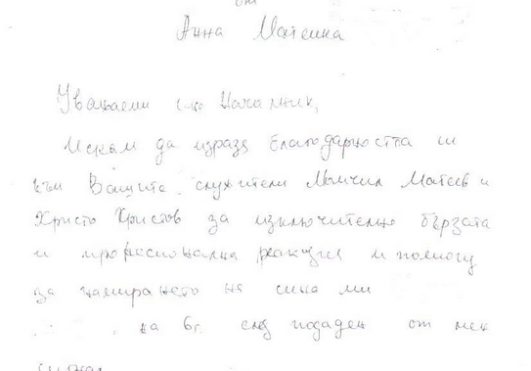 от
Анна Матеина
Уважаеми г-не Началник,
Искам да изразя благодарността си
към Вашите служители Момчил Матев и
Христо Христов за изключително бързата
и професионална реакция и помощ
за намирането на сина ми
на 6г. след подаден от мен
сигнал